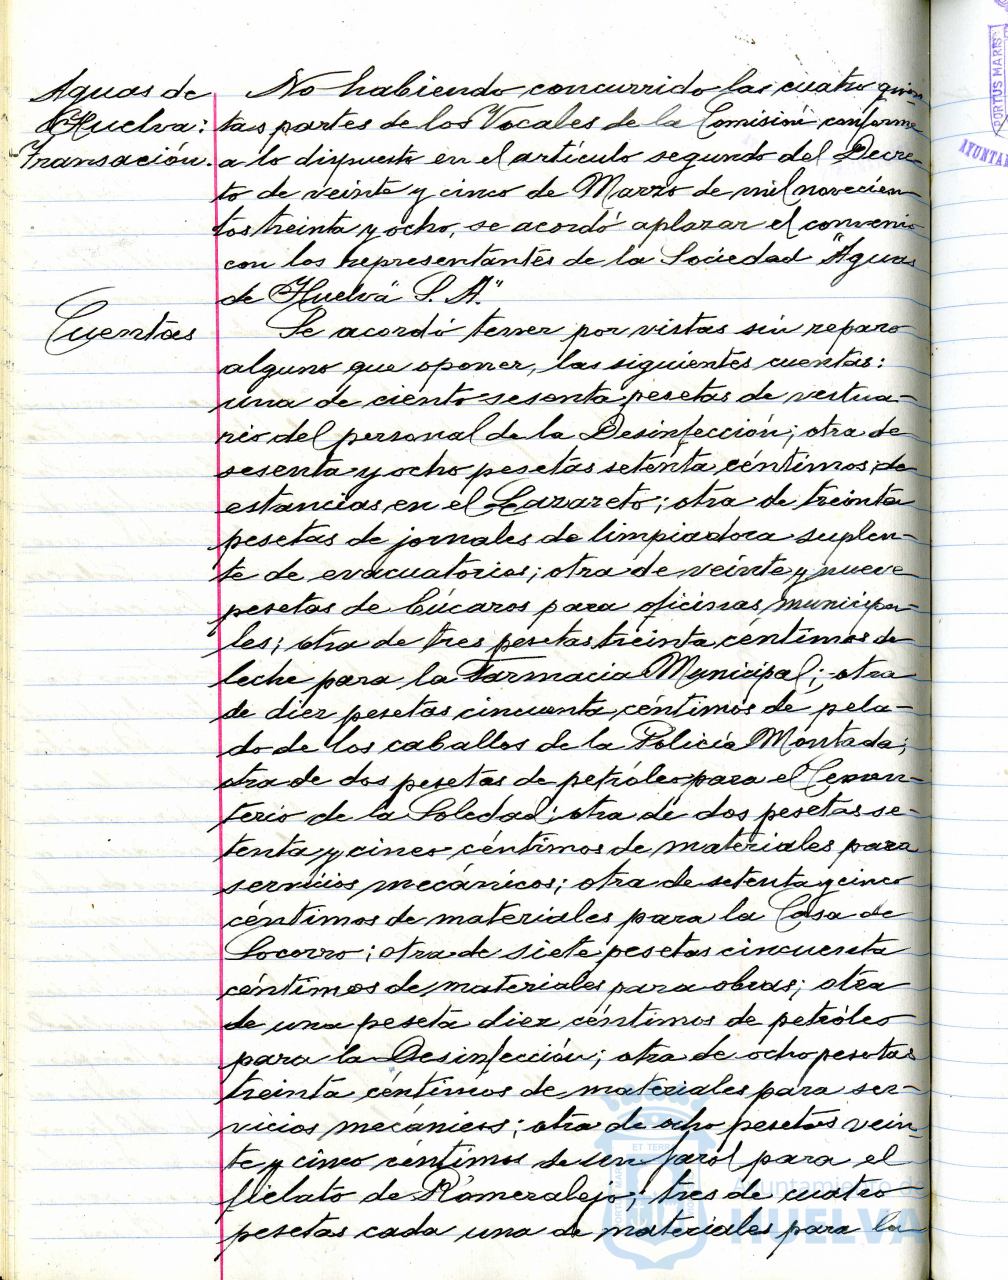 Aguas de
Huelva:
Transación.
No habiendo concurrido las cuatro quin-
tas partes de los Vocales de la Comisión conforme
a lo dispuesto en el artículo segundo del Decre-
to de veinte y cinco de Marzo de mil novecien-
tos treinta y ocho, se acordó aplazar el convenio
con los representantes de la Sociedad "Aguas
de Huelva S. A."
Cuentas
Se acordó tener por vistas sin reparo
alguno que oponer, las siguientes cuentas:
una de ciento sesenta pesetas de vestua-
rio del personal de la Desinfección; otra de
sesenta y ocho pesetas setenta céntimos, de
estancias en el Lazareto; otra de treinta
pesetas de jornales de limpiadora suplen-
te de evacuatorios; otra de veinte y nueve
pesetas de búcaros para oficinas municipa-
les; otra de tres pesetas treinta céntimos de
leche para la Farmacia Municipal; otra
de diez pesetas cincuenta céntimos de pela-
do de los caballos de la Policía Montada;
otra de dos pesetas de petróleo para el Cemen-
terio de la Soledad; otra de dos pesetas se-
tenta y cinco céntimos de materiales para
servicios mecánicos; otra de setenta y cinco
céntimos de materiales para la Casa de
Socorro; otra de siete pesetas cincuenta
céntimos de materiales para obras; otra
de una peseta diez céntimos de petróleo
para la Desinfección; otra de ocho pesetas
treinta céntimos de materiales para ser-
vicios mecánicos; otra de ocho pesetas vein-
te y cinco céntimos de un farol para el
fielato de Romeralejo; tres de cuatro
pesetas cada una de materiales para la
PORTUS MARIS
Ayuntamiento de
HUELVA